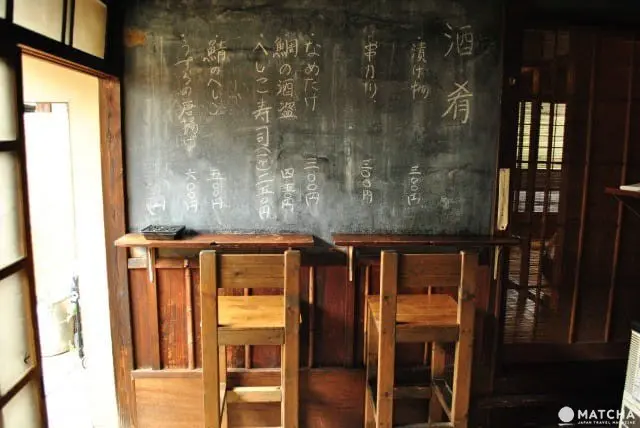 酒肴
・漬け物 三〇〇円
・串カツ 三〇〇円
・なめたけ 三〇〇円
鯛の酒盗 四五〇円
へしこ寿司 二五〇円
・鯖のへしこ 五〇〇円
・うずらの唐揚げ 六〇〇円
円
MATCHA
JAPAN TRAVEL MAGAZINE